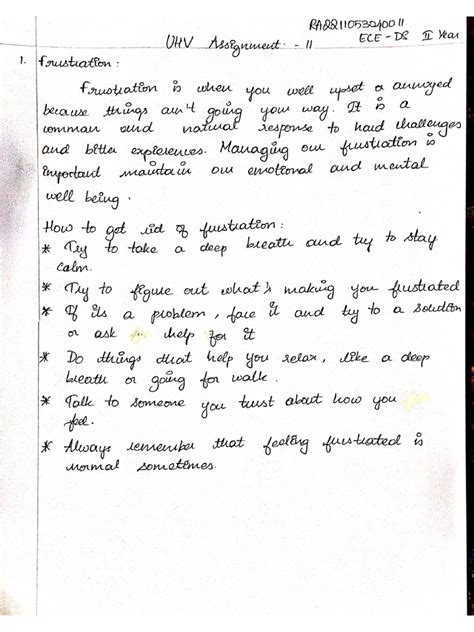 RA2211053040011
UHV Assignment - II ECE - DS II Year
1. frustration :
frustration is when you well upset a annoyed
because things ain't going your way. It is a
common and natural response to hard challenges
and bitter experiences. Managing our frustration is
important maintain our emotional and mental
well being.
How to get rid of frustration :
* Try to take a deep breath and try to stay
calm.
* Try to figure out what's making you frustrated
* If its a problem, face it and try to a solution
or ask help for it
* Do things that help you relax, like a deep
breath or going for walk.
* Talk to someone you trust about how you
feel.
* Always remember that feeling frustrated is
normal sometimes.